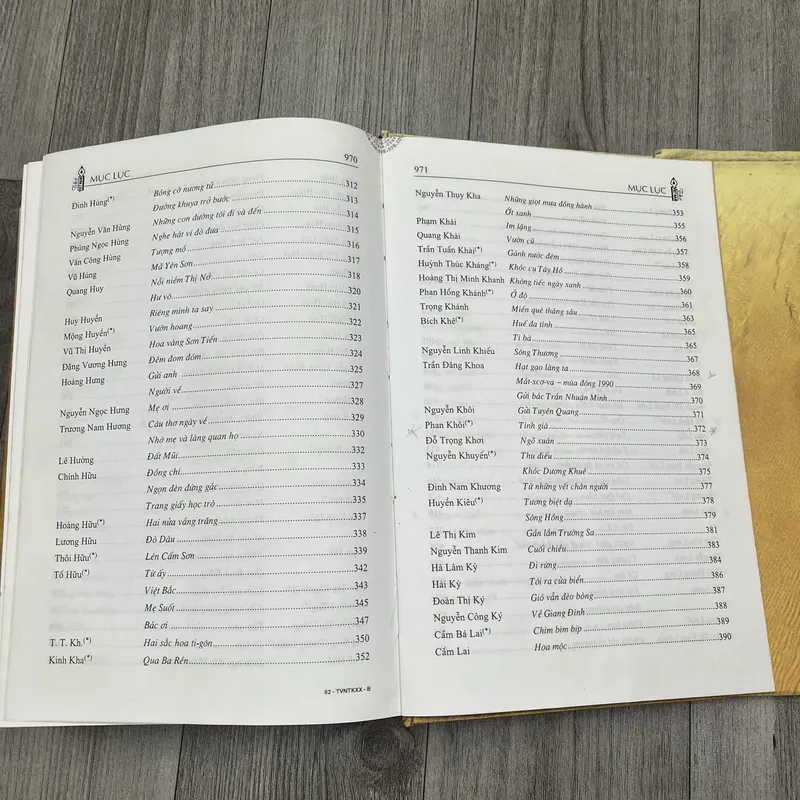 970
MỤC LỤC
Đinh Hùng(*) Bông cỏ nương tử 312
Đường khuya trở bước 313
Nguyễn Văn Hùng Những con đường tôi đi và đến 314
Phùng Ngọc Hùng Nghe hát ví đò đưa 315
Văn Công Hùng Tượng mồ 316
Vũ Hùng Mã Yên Sơn 317
Quang Huy Nỗi niềm Thị Nở 318
Hư vô 320
Huy Huyền Riêng mình ta say 321
Mộng Huyền(*) Vườn hoang 322
Vũ Thị Huyền Hoa vàng Sơn Tiến 323
Đặng Vương Hưng Đêm đom đóm 324
Hoàng Hưng Gửi anh 325
Người về 327
Nguyễn Ngọc Hưng Mẹ ơi 328
Trương Nam Hương Câu thơ ngày về 329
Nhớ mẹ và làng quan họ 330
Lê Hường Đất Mũi 332
Chính Hữu Đồng chí 333
Ngọn đèn đứng gác 334
Trang giấy học trò 335
Hoàng Hữu(*) Hai nửa vầng trăng 337
Lương Hữu Đò Dâu 338
Thôi Hữu(*) Lên Cấm Sơn 339
Tố Hữu(*) Từ ấy 342
Việt Bắc 343
Mẹ Suốt 345
Bác ơi 347
T. T. Kh.(*) Hai sắc hoa ti-gôn 350
Kinh Kha(*) Qua Ba Rền 352
62 - TVNTKXX - B
971
MỤC LỤC
Nguyễn Thụy Kha Những giọt mưa đồng hành 353
Ớt xanh 355
Phạm Khải Im lặng 356
Quang Khải Vườn cũ 357
Trần Tuấn Khải(*) Gánh nước đêm 358
Huỳnh Thúc Kháng(*) Khốc cụ Tây Hồ 359
Hoàng Thị Minh Khanh Không tiếc ngày xanh 360
Phan Hồng Khánh(*) Ở đó 361
Trọng Khánh Miền quê tháng sáu 363
Bích Khê(*) Huế đa tình 365
Tì bà 365
Nguyễn Linh Khiếu Sông Thương 367
Trần Đăng Khoa Hạt gạo làng ta 368
Mát-xcơ-va – mùa đông 1990 369
Gửi bác Trần Nhuận Minh 370
Nguyễn Khôi Gửi Tuyên Quang 371
Phan Khôi(*) Tình già 372
Đỗ Trọng Khơi Ngõ xuân 373
Nguyễn Khuyến(*) Thu điếu 374
Khóc Dương Khuê 375
Đinh Nam Khương Từ những vết chân người 377
Huyền Kiêu(*) Tương biệt dạ 378
Sông Hồng 379
Lê Thị Kim Gần lắm Trường Sa 381
Nguyễn Thanh Kim Cuối chiều 383
Hà Lâm Kỳ Đi rừng 384
Hải Kỳ Tôi ra cửa biển 386
Đoàn Thị Ký Gió vẫn đèo bòng 387
Nguyễn Công Ký Về Giang Đình 388
Cầm Bá Lai(*) Chim bìm bịp 389
Cầm Lai Hoa mộc 390